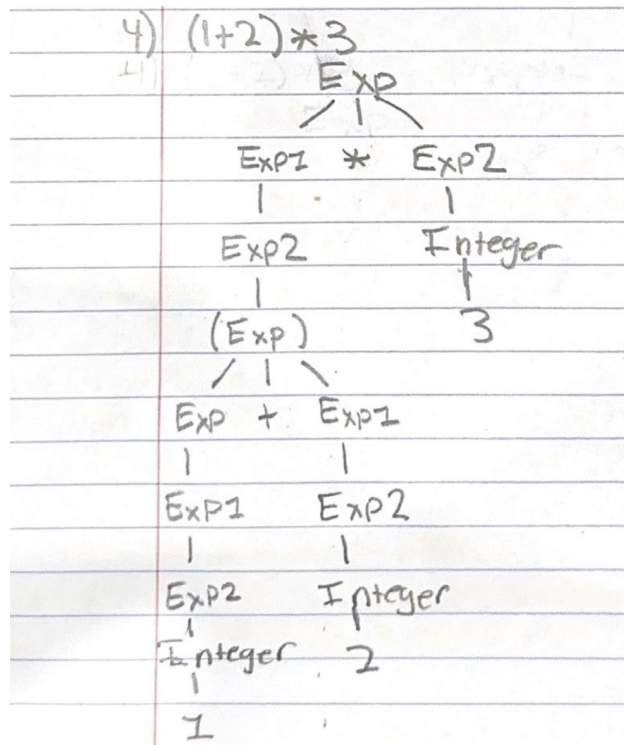 4) (1+2)*3
Exp
Exp1 * Exp2
Exp2 Integer
(Exp) 3
Exp + Exp1
Exp1 Exp2
Exp2 Integer
Integer 2
1